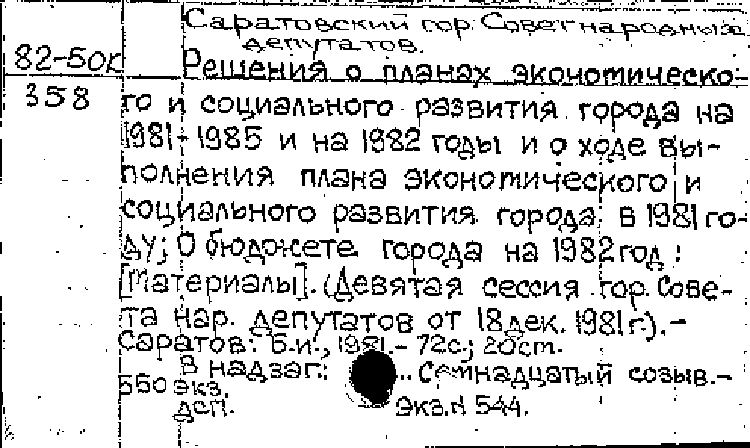 Саратовский гор. Совет народных
депутатов.
82-50к
Решения о планах экономическо-
358
го и социального развития города на
1981-1985 и на 1982 годы и о ходе вы-
полнения плана экономического и
социального развития города в 1981 го-
ду; О бюджете города на 1982 год :
[Материалы]. (Девятая сессия гор. Сове-
та нар. депутатов от 18 дек. 1981 г.).-
Саратов: Б.и., 1981.- 72с.; 20 см.
В надзаг.: .. Семнадцатый созыв.-
550 экз.
дсп.
Экз.N 544.